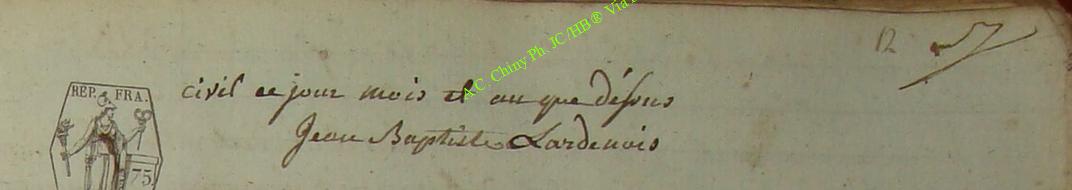 A.C. Chiny Ph. JC/HB® Via
12
RÉP. FRA.
civil ce jour mois et an que dessus
Jean Baptiste Lardenois
75